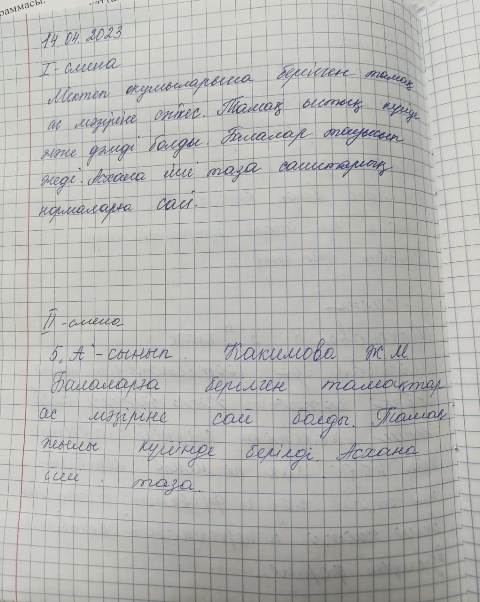 раммасы.
14.04.2023
I-смена
Мектеп оқушыларына берілген тамақ
ас мәзіріне сәйкес. Тамақ ыстық күйінде
және дәмді болды. Балалар тауысып
жеді. Асхана іші таза санитарлық
нормаларға сай.
II-смена
5 "А"-сынып Какимова Ж.М
Балаларға берілген тамақтар
ас мәзіріне сай болды. Тамақ
жылы күйінде берілді. Асхана
іші таза.